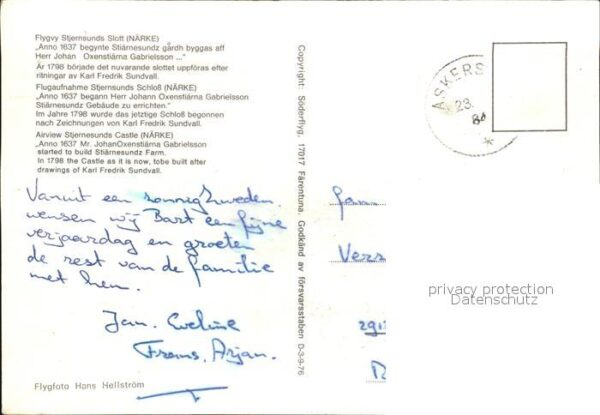 Flygvy Stjernsunds Slott (NÄRKE)
„Anno 1637 begynte Stiärnesundz gårdh byggas aff
Herr Johan Oxenstiärna Gabrielsson ..."
År 1798 började det nuvarande slottet uppföras efter
ritningar av Karl Fredrik Sundvall.
Flugaufnahme Stjernsunds Schloß (NÄRKE)
„Anno 1637 begann Herr Johann Oxenstiärna Gabrielsson
Stiärnesundz Gebäude zu errichten."
Im Jahre 1798 wurde das jetztige Schloß begonnen
nach Zeichnungen von Karl Fredrik Sundvall.
Airview Stjernsunds Castle (NÄRKE)
„Anno 1637 Mr. JohanOxenstiärna Gabrielsson
started to build Stiärnesundz Farm.
In 1798 the Castle as it is now, tobe built after
drawings of Karl Fredrik Sundvall.
Vanuit een zonnig Zweden
wensen wij Bart een fijne
verjaardag en groeten
de rest van de familie
met hem.
Jan. Eveline
Frans, Arjan.
Flygfoto Hans Hellström
Copyright: Söderflyg, 17017 Färentuna. Godkänd av försvarsstaben D-3-9-76
ASKERS
23.
Fam
Vers
privacy protection
Datenschutz